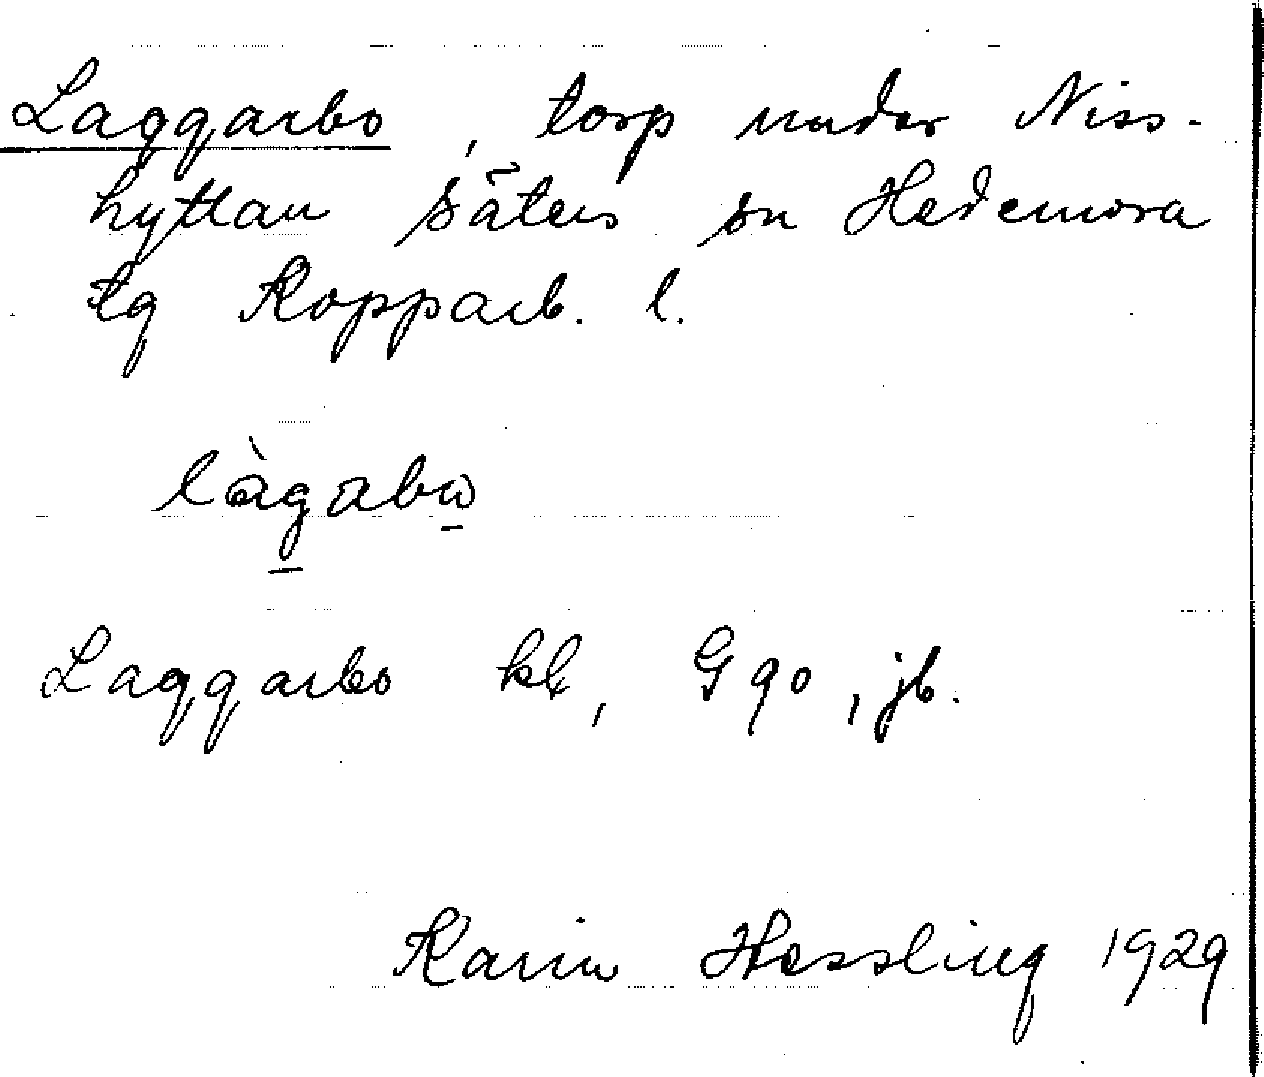 Laggarbo, torp under Niss-
hyttan Säters sn Hedemora
tg Kopparb. l.
làgabω
Laggarbo kb, G 90, jb.
Karin Hessling 1929